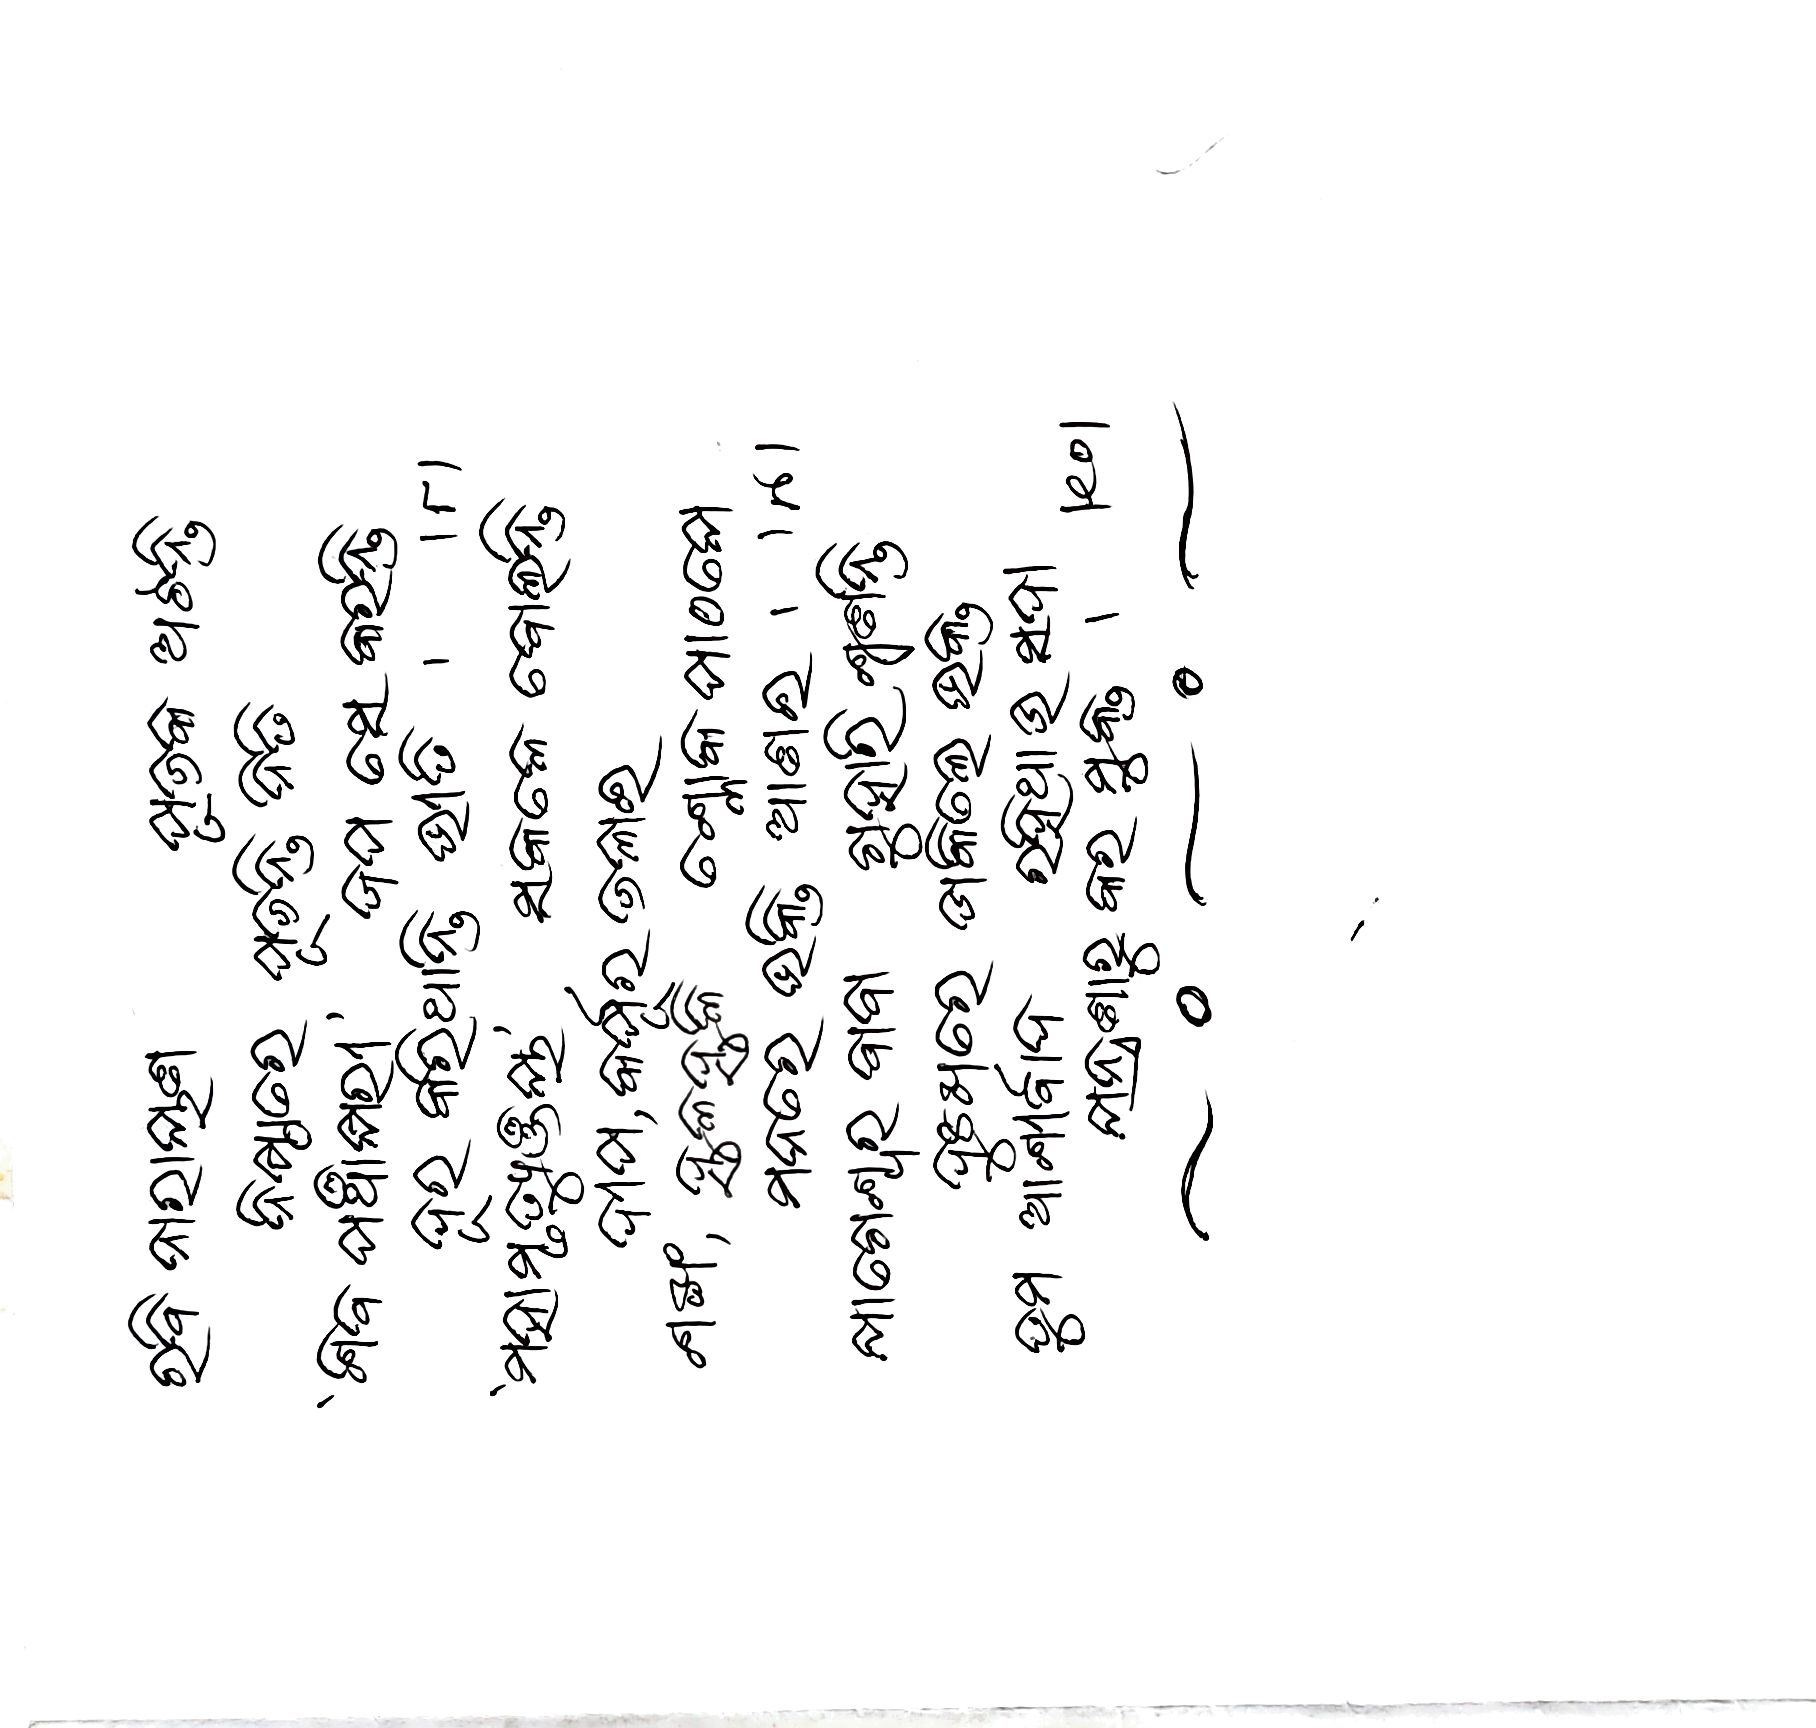 ରବି ନାରାୟଣ ପୂଜକ ଅଟନ୍ତି
ନିଷ୍ଠାରେ ପୂଜନ୍ତି ନିତି
'ଶିବ ପଞ୍ଚାକ୍ଷରୀ' ଜପ ସେ କରନ୍ତି
ଦୂର କରିଥାନ୍ତି ଭୀତି । ।୮।
'ମହାମୃତ୍ୟୁଞ୍ଜୟ' ସକଳେ ବୋଲନ୍ତି
ଦୀପ, କର୍ପୂର ଜଳାଇ
ଶଙ୍ଖ, ହୁଳହୁଳି ଶ୍ଲୋକ ପାଠଳେ
ମନରେ ଭକ୍ତି ଆଣଇ । ।୯।
ଯାଗେଶ୍ୱର ବାବା ଗୁହାରି ଶୁଣନ୍ତି
ଦୁଃଖରେ ଡାକିଲେ ଭକ୍ତ
ତୁମ ଆଶୀର୍ବାଦ ରହିଥାଉ ସଦା
ଯନ୍ତ୍ରଣାରୁ କର ମୁକ୍ତ । ।୧୦।